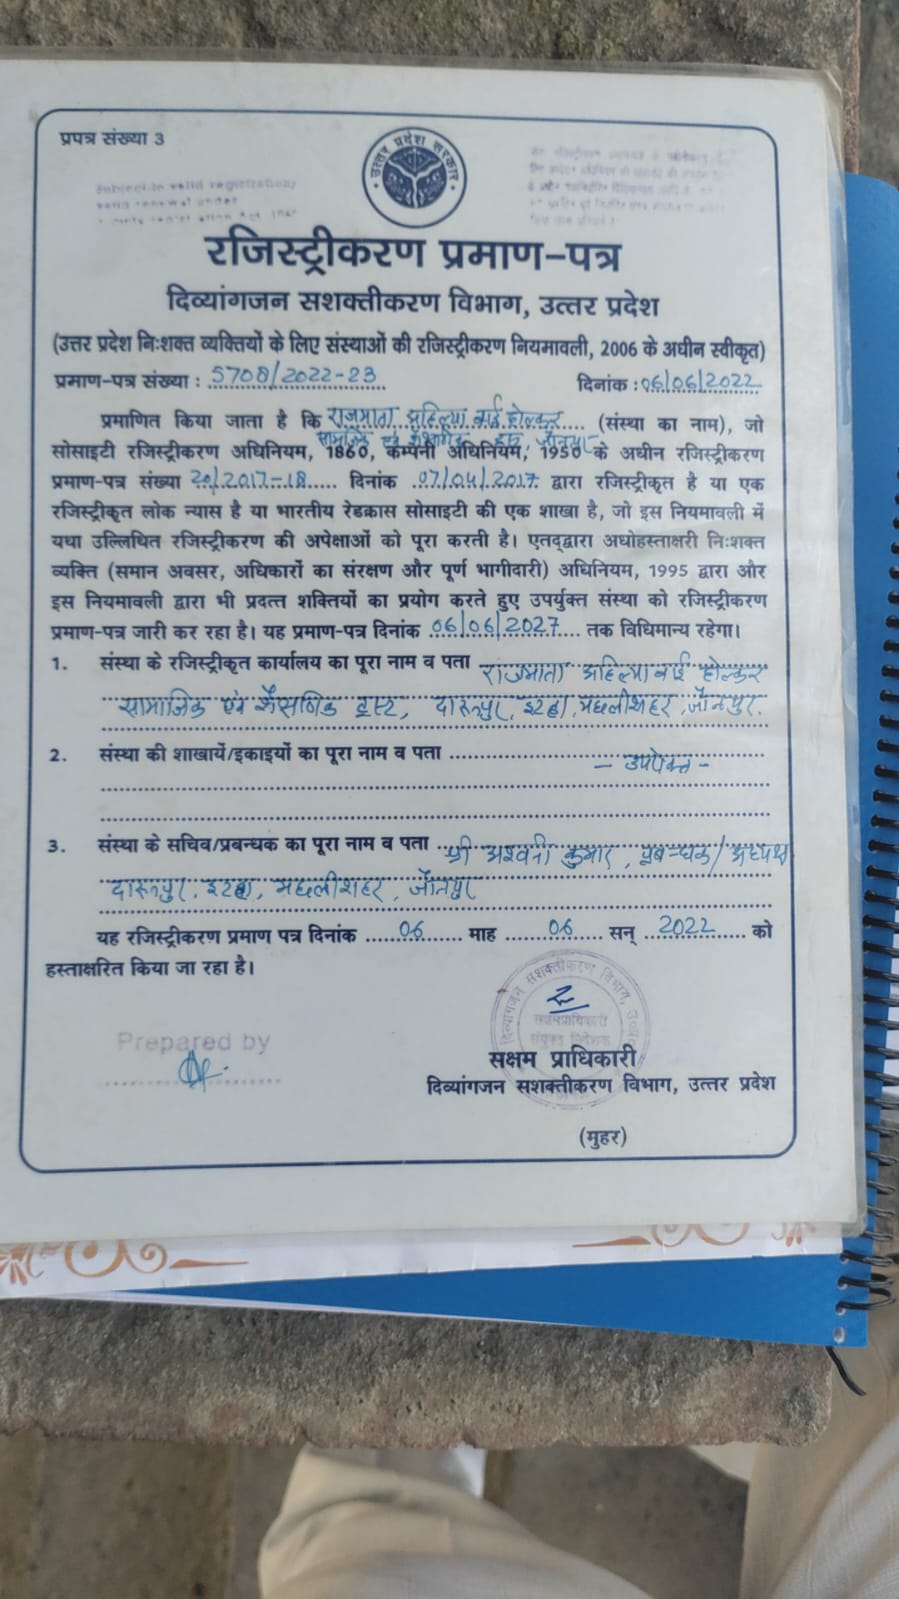 प्रपत्र संख्या 3
उत्तर प्रदेश सरकार
Subject to valid registration/
valid renewal under
रजिस्ट्रीकरण प्रमाण-पत्र
दिव्यांगजन सशक्तीकरण विभाग, उत्तर प्रदेश
(उत्तर प्रदेश निःशक्त व्यक्तियों के लिए संस्थाओं की रजिस्ट्रीकरण नियमावली, 2006 के अधीन स्वीकृत)
प्रमाण-पत्र संख्या : 5708/2022-23 दिनांक : 06/06/2022
प्रमाणित किया जाता है कि राजमाता अहिल्या बाई होल्कर (संस्था का नाम), जो
सामाजिक एवं
सोसाइटी रजिस्ट्रीकरण अधिनियम, 1860, कम्पनी अधिनियम, 1956 के अधीन रजिस्ट्रीकरण
प्रमाण-पत्र संख्या 20/2017-18 दिनांक 07/04/2017 द्वारा रजिस्ट्रीकृत है या एक
रजिस्ट्रीकृत लोक न्यास है या भारतीय रेडक्रास सोसाइटी की एक शाखा है, जो इस नियमावली में
यथा उल्लिथित रजिस्ट्रीकरण की अपेक्षाओं को पूरा करती है। एतद्द्वारा अधोहस्ताक्षरी निःशक्त
व्यक्ति (समान अवसर, अधिकारों का संरक्षण और पूर्ण भागीदारी) अधिनियम, 1995 द्वारा और
इस नियमावली द्वारा भी प्रदत्त शक्तियों का प्रयोग करते हुए उपर्युक्त संस्था को रजिस्ट्रीकरण
प्रमाण-पत्र जारी कर रहा है। यह प्रमाण-पत्र दिनांक 06/06/2027 तक विधिमान्य रहेगा।
1. संस्था के रजिस्ट्रीकृत कार्यालय का पूरा नाम व पता राजमाता अहिल्या बाई होल्कर
सामाजिक एवं शैक्षणिक ट्रस्ट, दारूपुर, इटहा, मछलीशहर, जौनपुर.
2. संस्था की शाखायें/इकाइयों का पूरा नाम व पता
- उपरोक्त -
3. संस्था के सचिव/प्रबन्धक का पूरा नाम व पता श्री अश्वनी कुमार, प्रबन्धक/अध्यक्ष
दारूपुर, इटहा, मछलीशहर, जौनपुर
यह रजिस्ट्रीकरण प्रमाण पत्र दिनांक 06 माह 06 सन् 2022 को
हस्ताक्षरित किया जा रहा है।
Prepared by
सक्षम प्राधिकारी
दिव्यांगजन सशक्तीकरण विभाग, उत्तर प्रदेश
(मुहर)